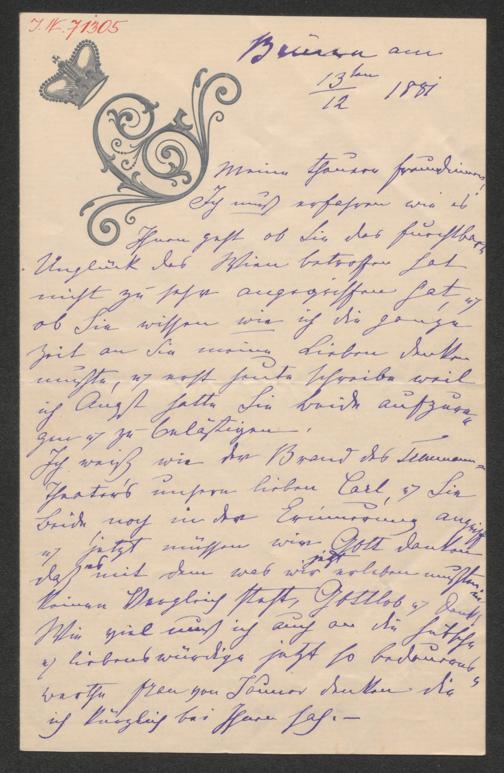 J.N. 71305
Brünn am
13ten
12 1881
Meine theuren Freundinnen,
Ich muß erfahren wie es
Ihnen geht ob Sie das furchtbare
Unglück das Wien betroffen hat
nicht zu sehr angegriffen hat, u
ob Sie wissen wie ich die ganze
Zeit an Sie meine Lieben denken
mußte, u erst heute schreibe weil
ich Angst hatte Sie beide aufzure-
gen u zu belästigen.
Ich weiß wie der Brand des
Theaters unsern lieben Carl, u Sie
beide noch in der Erinnerung angriff
u jetzt müssen wir Gott danken
daß es mit dem was wir jetzt erleben mußten in
keinen Vergleich steht, Gottlob u Dank
Wie viel muß ich auch an die hübsche
u liebenswürdige jetzt so bedauerns-
werthe Frau von denken die
ich kürzlich bei Ihnen sah. —